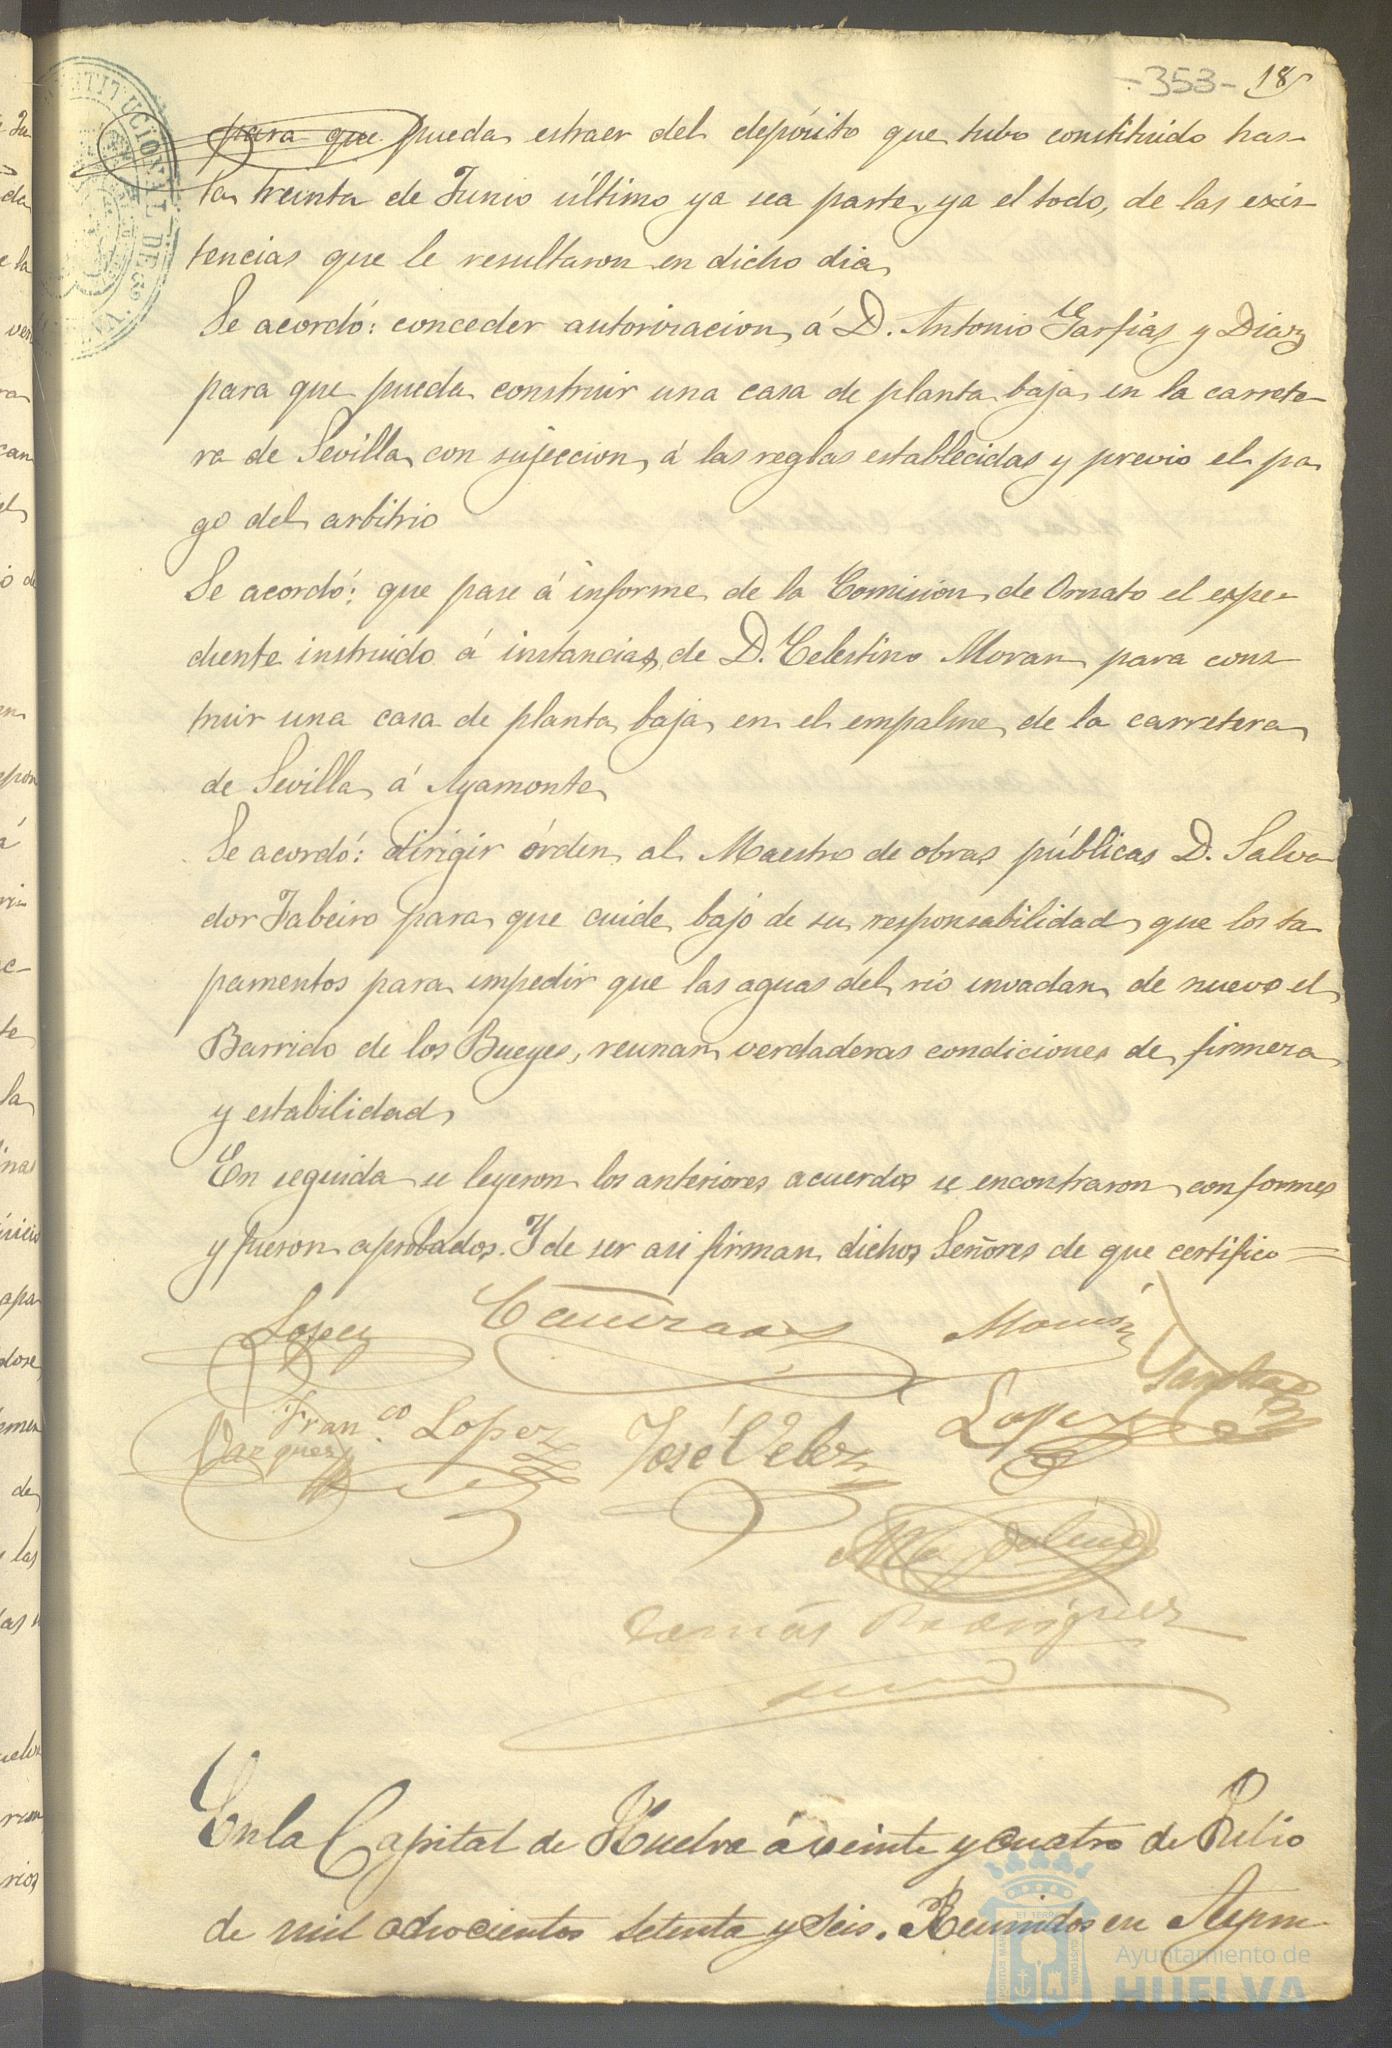 -353- 18
para que pueda estraer del depósito que tubo constituido has-
ta treinta de Junio último ya sea parte, ya el todo, de las exis-
tencias que le resultaron en dicho dia
Se acordó: conceder autorizacion á D. Antonio Garfias y Diaz
para que pueda construir una casa de planta baja en la carrete-
ra de Sevilla con sujeccion á las reglas establecidas y previo el pa
go del arbitrio
Se acordó: que pase á informe de la Comision de Ornato el espe-
diente instruido á instancias de D. Celestino Moran para cons-
truir una casa de planta baja en el empalme de la carretera
de Sevilla á Ayamonte
Se acordó: dirigir órden al Maestro de obras públicas D. Salva
dor Tabeiro para que cuide bajo de su responsabilidad que los ta
pamentos para impedir que las aguas del rio invadan de nuevo el
Barrido de los Bueyes, reunan verdaderas condiciones de firmeza
y estabilidad
En seguida se leyeron los anteriores acuerdos se encontraron conformes
y fueron aprobados. Y de ser asi firman dichos Señores de que certifico=
Lopez
Vazquez Franco Lopez José Velez Lopez
Tomás Rodriguez
En la Capital de Huelva á veinte y cuatro de Julio
de mil ochocientos setenta y seis. Reunidos en Ayun-
Ayuntamiento de
HUELVA